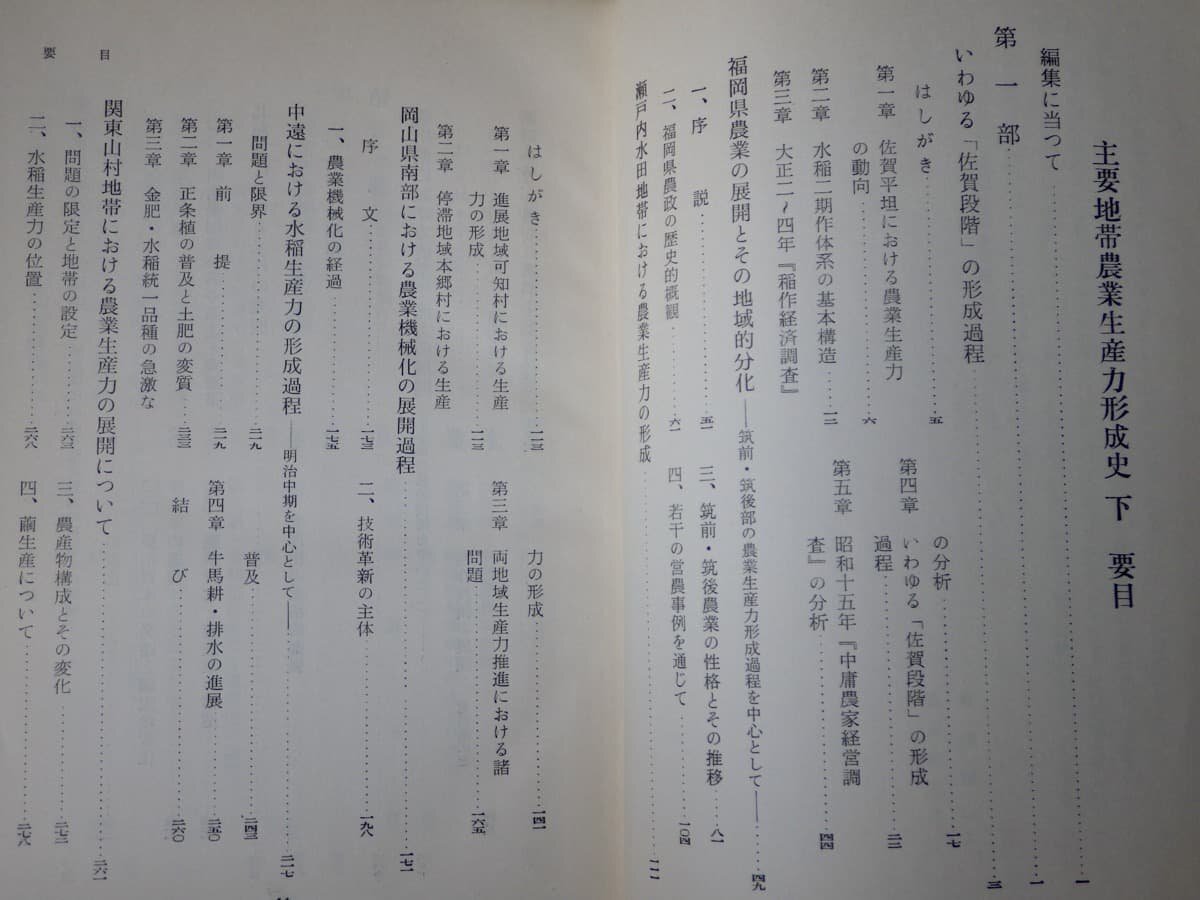 主要地帯農業生産力形成史 下 要目
編集に当つて……一
第一部……一
いわゆる「佐賀段階」の形成過程……三
はしがき……五
第一章 佐賀平坦における農業生産力
の動向……六
第二章 水稲二期作体系の基本構造……一二
第三章 大正二〜四年『稲作経済調査』
の分析……一七
第四章 いわゆる「佐賀段階」の形成
過程……二二
第五章 昭和十五年『中庸農家経営調
査』の分析……四四
福岡県農業の展開とその地域的分化――筑前・筑後部の農業生産力形成過程を中心として――……四九
一、序説……五一
二、福岡県農政の歴史的概観……六一
三、筑前・筑後農業の性格とその推移……八一
四、若干の営農事例を通じて……一〇四
瀬戸内水田地帯における農業生産力の形成……一一一
要目
はしがき……一一三
第一章 進展地域可知村における生産
力の形成……一一三
第二章 停滞地域本郷村における生産
力の形成……一四一
第三章 両地域生産力推進における諸
問題……一六五
岡山県南部における農業機械化の展開過程……一七一
序文……一七三
一、農業機械化の経過……一七五
二、技術革新の主体……一九八
中遠における水稲生産力の形成過程――明治中期を中心として――……二一七
問題と限界……二一九
第一章 前提……二一九
第二章 正条植の普及と土肥の変質……二三三
第三章 金肥・水稲統一品種の急激な
普及……二四三
第四章 牛馬耕・排水の進展……二五〇
結び……二六〇
関東山村地帯における農業生産力の展開について……二六一
一、問題の限定と地帯の設定……二六三
二、水稲生産力の位置……二六八
三、農産物構成とその変化……二七三
四、繭生産について……二七八